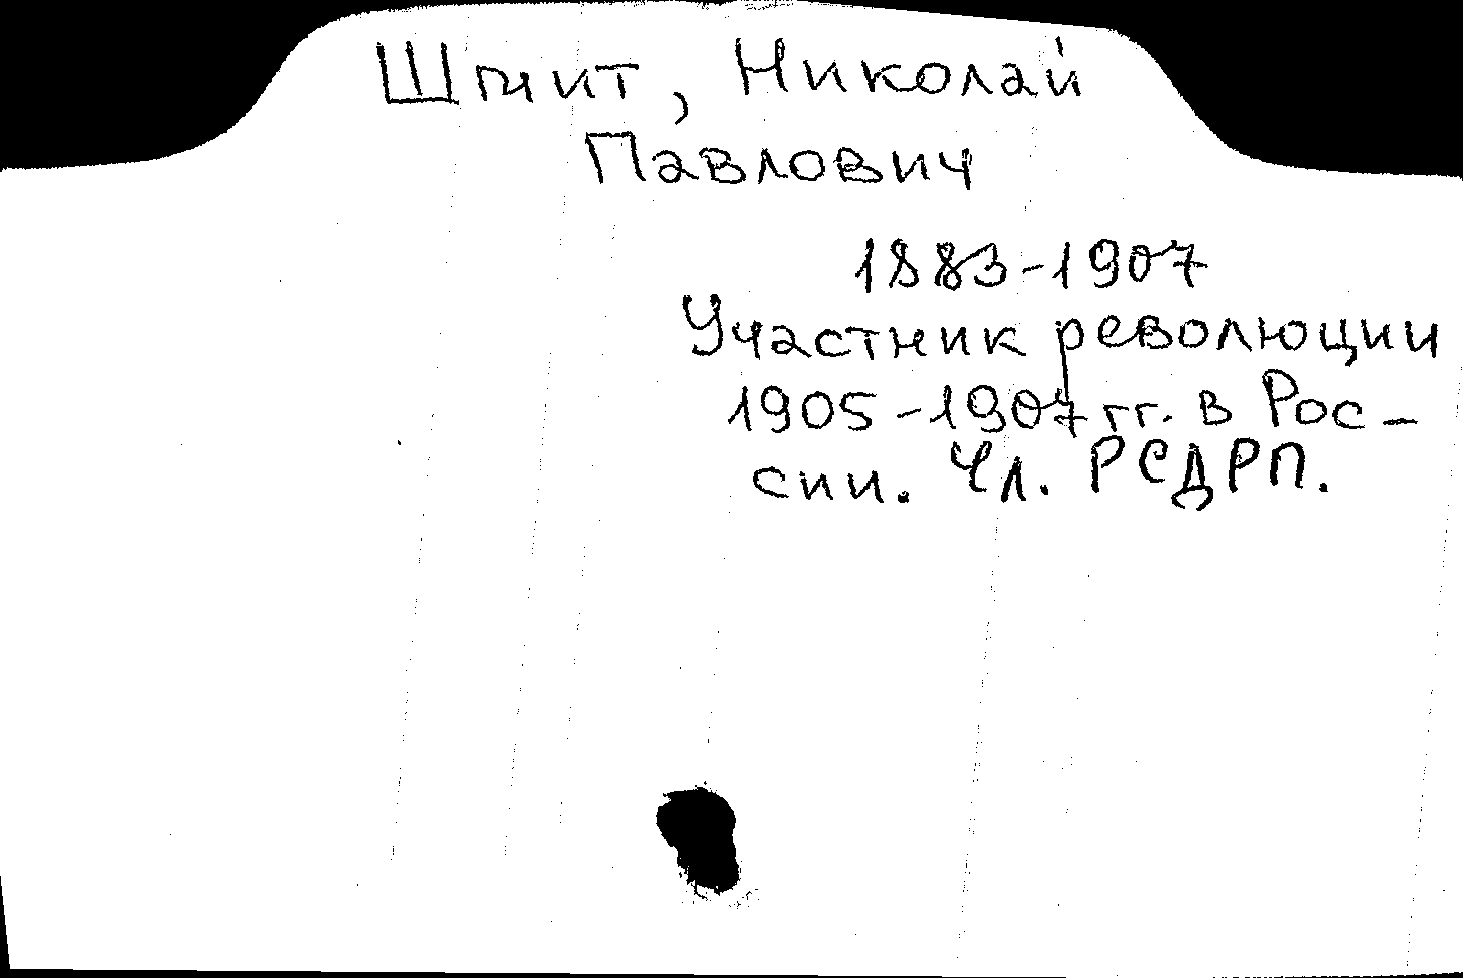 Шмит, Николай
Павлович
1883-1907
Участник революции
1905-1907 гг. в Рос-
сии. Чл. РСДРП.